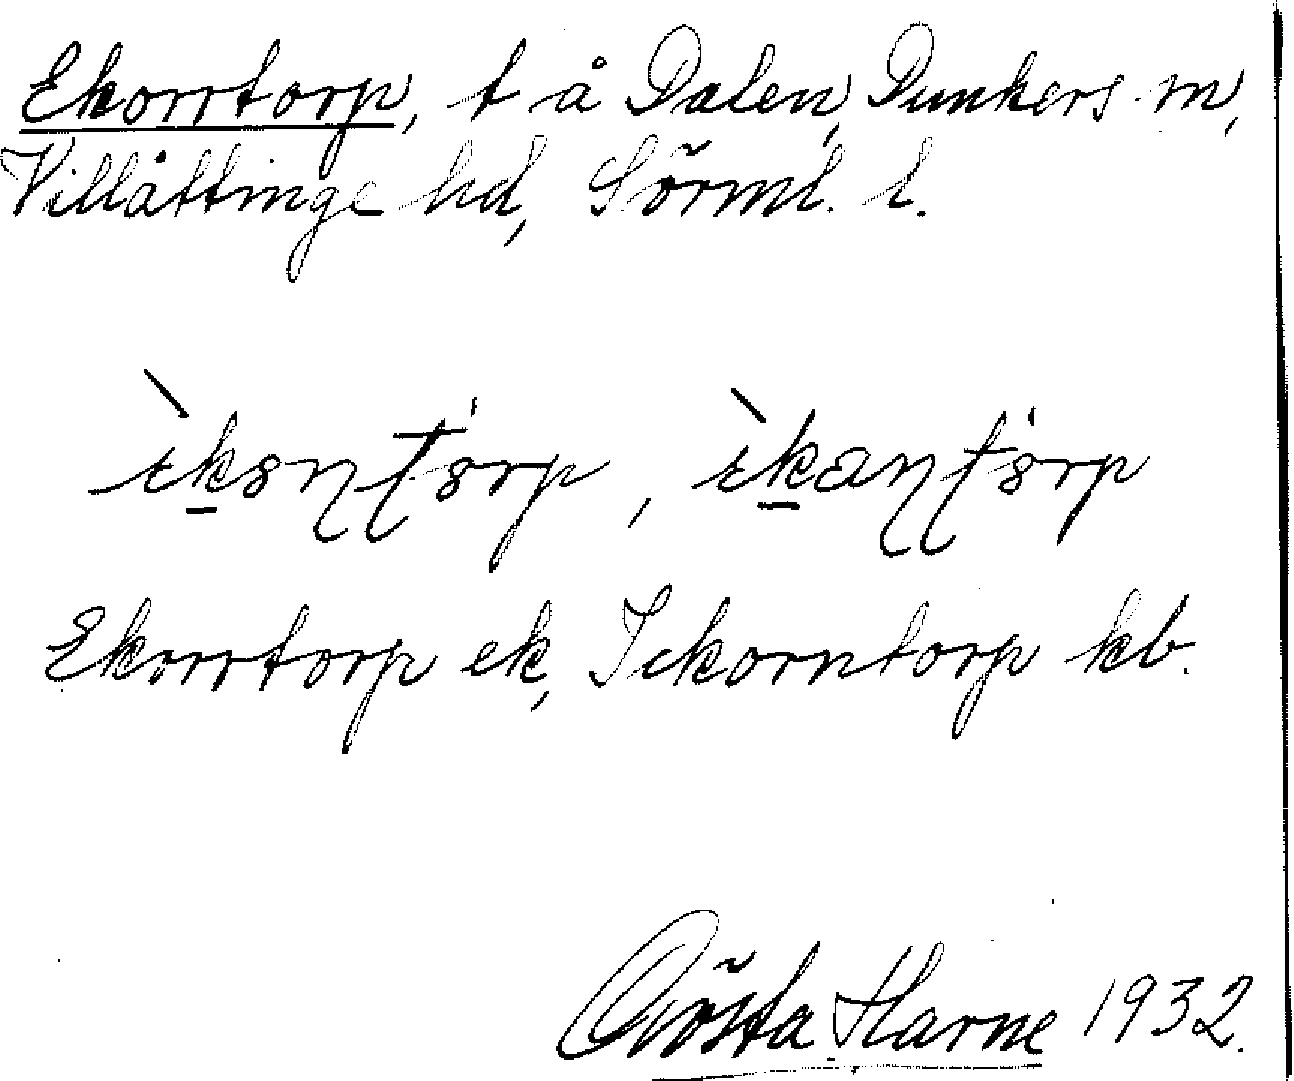 Ekorrtorp, t å Dalen, Dunkers sn,
Villåttinge hd, Sörml. l.
ìk̲sɳʈsrp, ìk̲aɳʈsrp
Ekorrtorp ek, Ickorntorp kb.
Gösta Harne 1932.